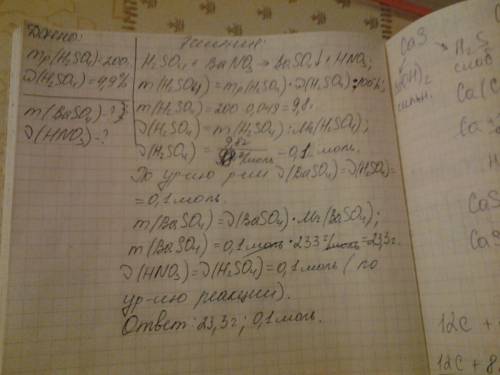 Дано:
mр(H₂SO₄)=200.
ω(H₂SO₄)=4,9%
m(BaSO₄)-?
ν(HNO₃)-?
Решение:
H₂SO₄ + BaNO₃ → BaSO₄↓ + HNO₃;
m(H₂SO₄)=mр(H₂SO₄)·ω(H₂SO₄):100%;
m(H₂SO₄)=200·0,049=9,8г
ν(H₂SO₄)=m(H₂SO₄):Mr(H₂SO₄);
ν(H₂SO₄)=9,8г/98г/моль=0,1моль.
По ур-ию р-ии ν(BaSO₄)=ν(H₂SO₄)=
=0,1моль.
m(BaSO₄)=ν(BaSO₄)·Mr(BaSO₄);
m(BaSO₄)=0,1моль·233г/моль=23,3г.
ν(HNO₃)=ν(H₂SO₄)=0,1моль (по
ур-ию реакции).
Ответ: 23,3г; 0,1моль.
CaS
H₂S
OH)₂
слаб
сильн.
Ca(C
CaS
12C +
12C + 8